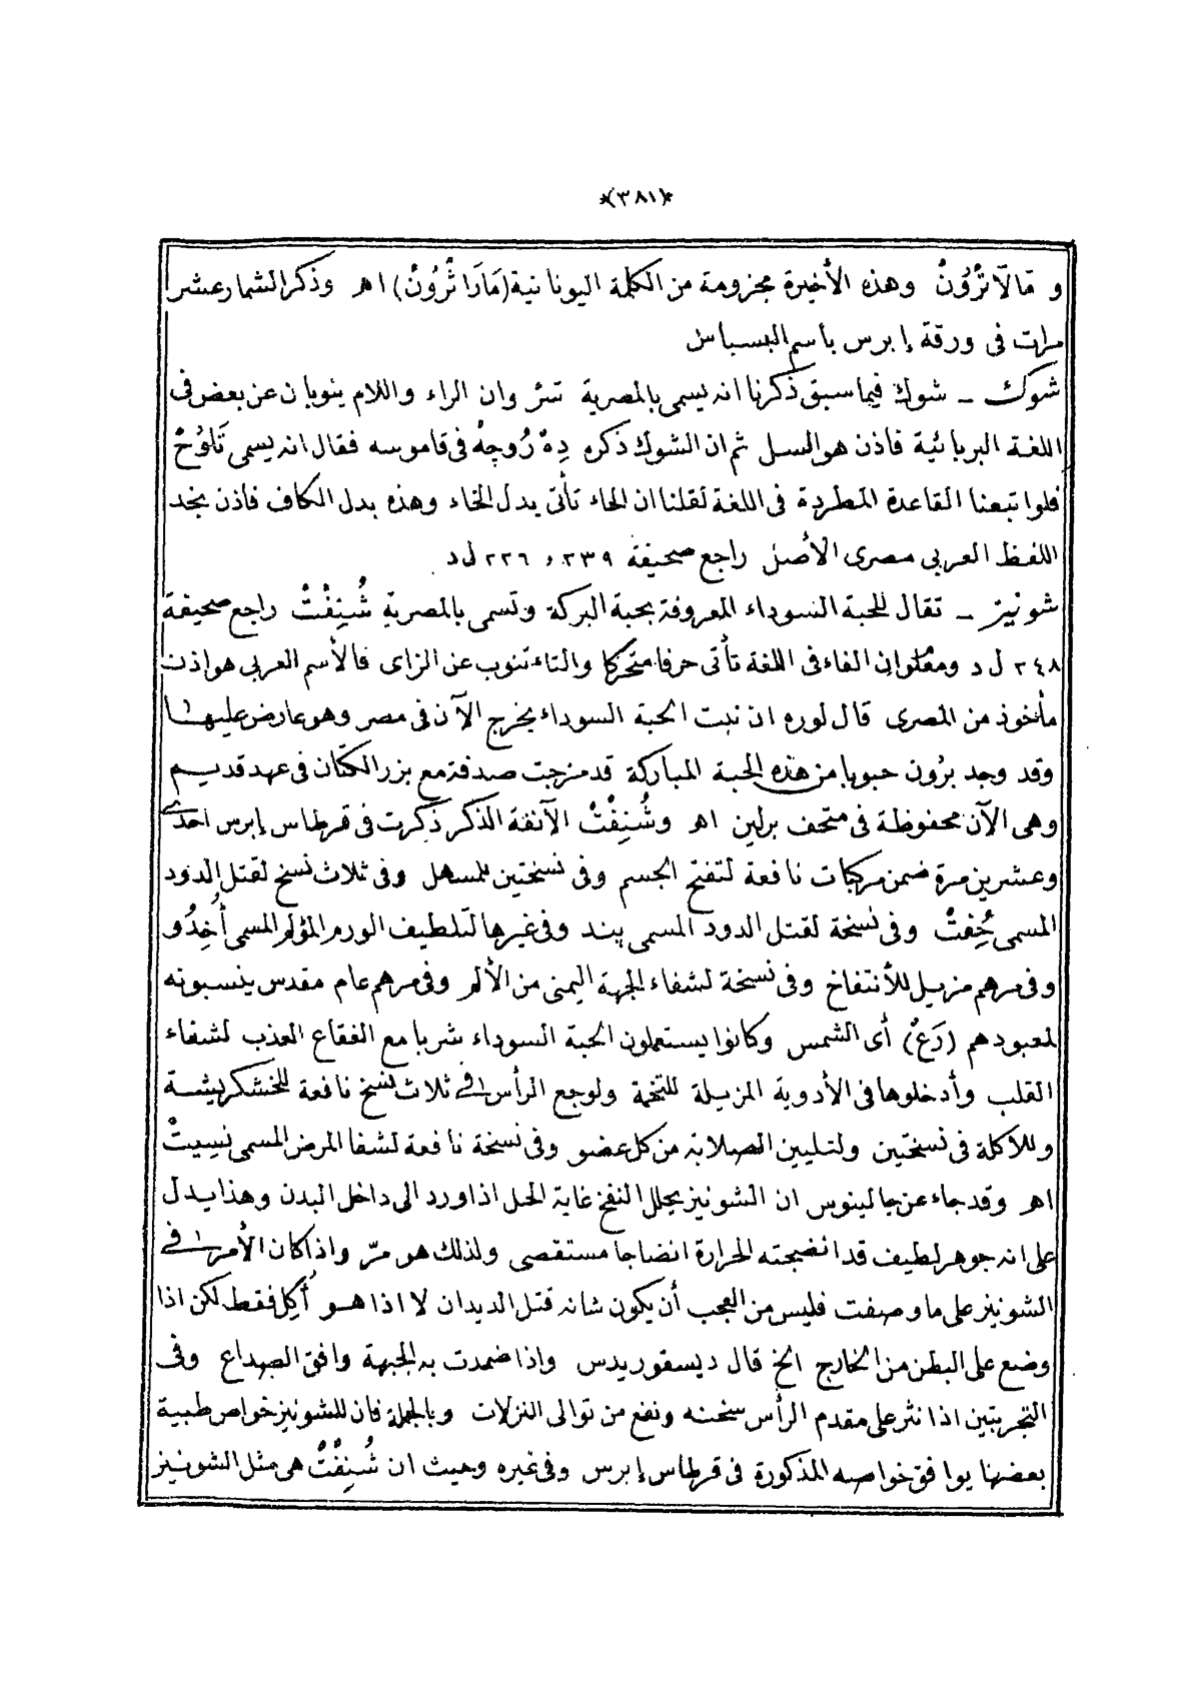 *(٣٨١)*
و قالاَتْرُونْ وهذه الأخيرة مجزومة من الكلمة اليونانية (مَارَاثْرُونْ) اهـ وذكر الشمار عشر
مرات فى ورقة إبرس بأسم البسباس
شوك ـ شوك فيما سبق ذكرنا انه يسمى بالمصرية سَرْ وان الراء واللام ينوبان عن بعض فى
اللغة البربائية فاذن هو السل ثم ان الشوك ذكره دِهْ رُوچِهْ فى قاموسه فقال انه يسمى تَلوُحْ
فلو اتبعنا القاعدة المطردة فى اللغة لقلنا ان الحاء تأتى بدل الخاء وهذه بدل الكاف فاذن نجد
اللفظ العربي مصرى الأصل راجع صحيفة ٢٣٩ و ٢٢٦ ل د
شونيز ـ تقال للحبة السوداء المعروفة بحبة البركة وتسمى بالمصرية شُنِفْتْ راجع صحيفة
٢٤٨ ل د ومعلوم ان الفاء فى اللغة تأتى حرفا متحركا والتاء تنوب عن الزاى فالأسم العربي هو اذن
مأخوذ من المصرى قال لوره ان نبت الحبة السوداء يخرج الآن فى مصر وهو عارض عليها
وقد وجد برُون حبوبا من هذه الحبة المباركة قد مزجت صدفة مع بزر الكتّان فى عهد قديم
وهى الآن محفوظة فى متحف برلين اهـ وشُنِفْتْ الآنفة الذكر ذكرت فى قرطاس إبرس احدى
وعشرين مرة ضمن مركبات نافعة لتفتح الجسم وفى نسختين للمسهل وفى ثلاث نسخ لقتل الدود
المسمى حُِفتْ وفى نسخة لقتل الدود المسمى پند وفى غيرها لتلطيف الورم المؤلم المسمى أُخِدُو
وفى مرهم مزيل للأنتفاخ وفى نسخة لشفاء الجهة اليمنى من الألم وفى مرهم عام مقدس ينسبونه
لمعبودهم (رَعْ) أى الشمس وكانوا يستعملون الحبة السوداء شربا مع الفقاع العذب لشفاء
القلب وأدخلوها فى الأدوية المزيلة للتخمة ولوجع الرأس فى ثلاث نسخ نافعة للخشكريشة
وللآكلة فى نسختين ولتليين الصلابة من كل عضو وفى نسخة نافعة لشفا المرض المسمى نسِيتْ
اهـ وقد جاء عن جالينوس ان الشونيز يحلل النفخ غاية الحل اذا ورد الى داخل البدن وهذا يدل
على انه جوهر لطيف قد انضجته الحرارة انضاجا مستقصى ولذلك هو مرّ واذا كان الأمر فى
الشونيز على ما وصفت فليس من العجب أن يكون شانه قتل الديدان لا اذا هو أُكِل فقط لكن اذا
وضع على البطن من الخارج الخ قال ديسقوريدس واذا ضمدت به الجبهة وافق الصداع وفى
التجربتين اذا نثر على مقدم الرأس سخنه ونفع من توالى النزلات وبالجملة فان للشونيز خواص طبية
بعضها يوافق خواصه المذكورة فى قرطاس إبرس وفى غيره وحيث ان شُنِفْتْ هى مثل الشونيز